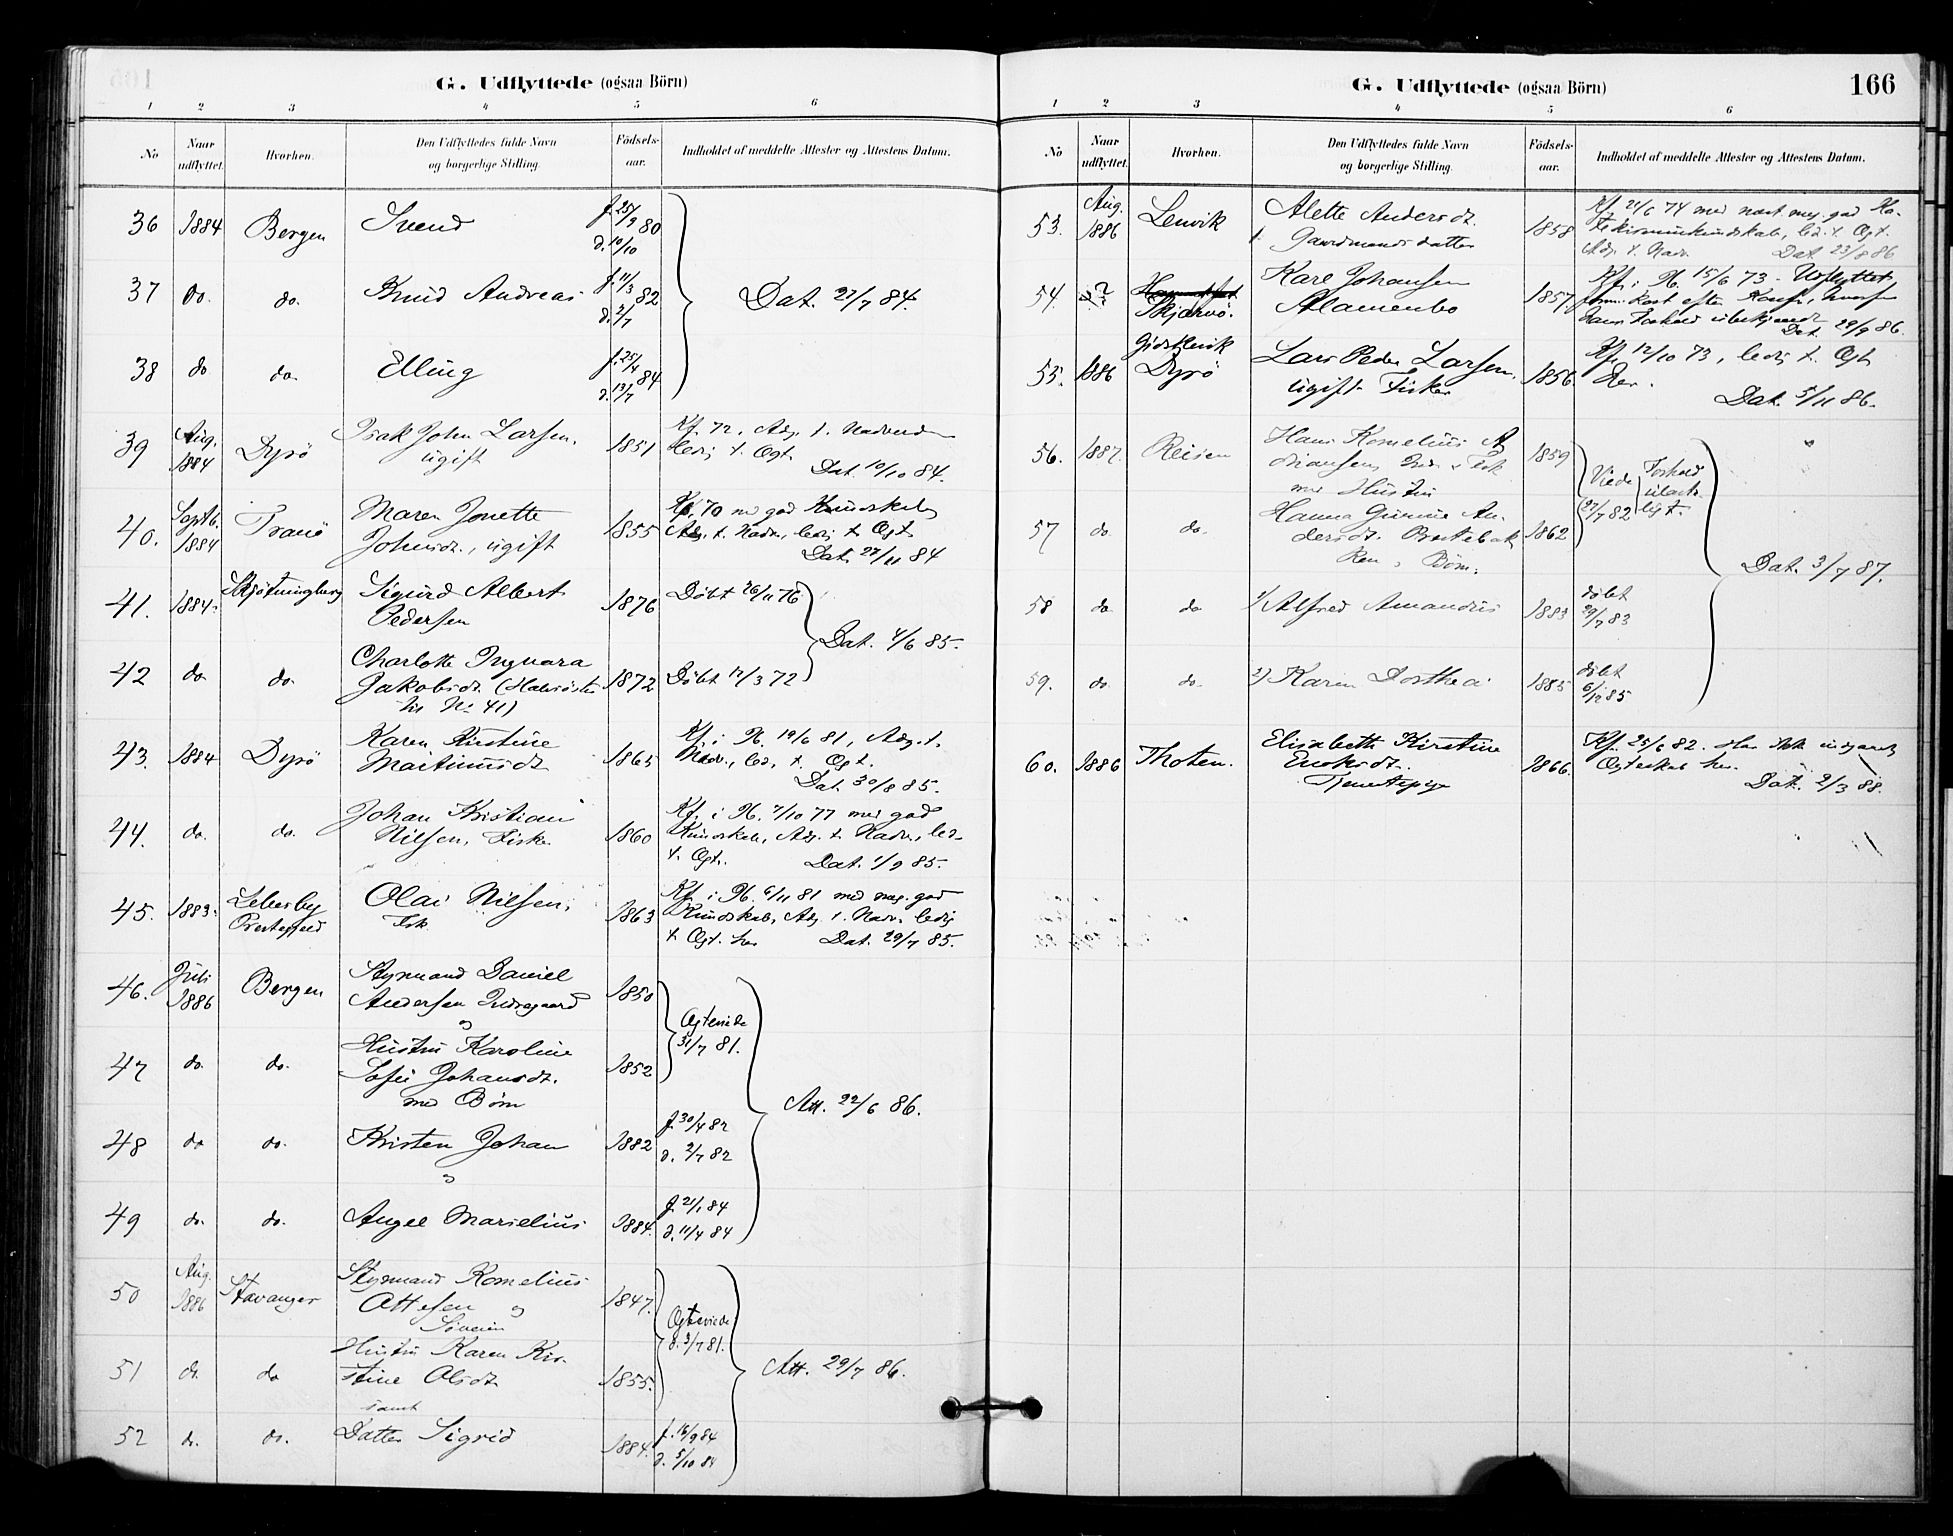 G. Udflyttede (ogsaa Börn)
1 2 3 4 5 6
No
Naar udflyttet.
Hvorhen.
Den Udflyttedes fulde Navn og borgerlige Stilling.
Födsels-aar.
Indholdet af meddelte Attester og Attestens Datum.
36 1884 Bergen Svend f. 25/9 80 d. 10/10
37 do. do. Knud Andreas f. 11/3 82 d. 2/7 Dat. 27/7 84.
38 do do. Elling f. 25/4 84 d. 13/7
39 Aug. 1884 Dyrö Isak John Larsen, 1851 Kf. 72, Adg. t. Nadverden
ugift ledig t. Ægt.
Dat. 10/10 84.
40. Septb. 1884 Tranö Maren Jonette 1855 Kf. 70 m god Kundskab,
Johnsdt., ugift Adg. t. Nadv., ledig t. Ægt.
Dat. 27/11 84
41. 1884. Skjötningberg Sigurd Albert 1876 Döbt 26/11 76
Pedersen Dat. 4/6 85.
42 do do. Charlotte Ingvara
Jakobsdt. (Halvsöster 1872 Döbt 17/3 72
til No 41)
43. 1884 Dyrö Karen Kirstine 1865 Kf. i H. 19/6 81, Adg. t.
Martinusdt Nadv., led. t. Ægt.
Dat. 30/8 85.
44. do. do. Johan Kristian 1860 Kf. i H. 7/10 77 med god
Nilsen, Fisker Kundskab, Adg. t. Nadv., led.
t. Ægt. Dat. 1/9 85.
45. 1883. Lebesby Olai Nilsen, 1863 Kf. i H. 6/11 81 med meg. god
Prestegjeld Fisk. Kundskab, Adg. t. Nadv. ledig
t. Ægt. her Dat. 29/7 85.
46. Juli 1886 Bergen Styrmand Daniel 1850
Andersen Indregaard
og Ægteviede 31/7 81.
47 do. do. Hustru Karoline
Sofie Johansdt. 1852
med Börn Att. 22/6 86.
48 do do. Kristen Johan 1882 f. 30/4 82
og d. 2/7 82
49 do. do. Angel Marselius 1884. f. 21/1 84
d. 11/4 84
50 Aug. 1886 Stavanger Styrmand Kornelius
Ottesen og 1847.
Ægteviede d. 3/7 81.
51 do. do Hustru Karen Kir-
stine Olsdt. 1855. Att. 29/7 86.
samt
52 do. do. Datter Sigrid 1884. f. 16/9 84
d. 5/10 84
G. Udflyttede (ogsaa Börn) 166
1 2 3 4 5 6
No
Naar udflyttet.
Hvorhen.
Den Udflyttedes fulde Navn og borgerlige Stilling.
Födsels-aar.
Indholdet af meddelte Attester og Attestens Datum.
53. Aug. 1886 Lenvik Alette Andersdt. 1858 Kf. 21/6 74 med næst meg. god Kri-
Gaardmandsdatter stendomskundskab, led. t. Ægt.
Adg. t. Nadv. Dat. 23/8 86
54. ? Skjervö. Karl Johansen 1857. Kf. i H. 15/6 73. Udflyttet
kort efter Konf., hvorfor
hans Forhold ubekjendt
Dat. 29/9 86.
55. 1886 Dyrö Lars Peder Larsen, 1856. Kf. 12/10 73, ledig t. Ægt
ugift Fisker her.
Dat. 5/11 86.
56. 1887. Reisen Hans Kornelius A 1859
driansen,
med Hustru Viede 27/7 82
57 do. do. Hanna An- 1862
dersdt.
Börn: Dat. 3/7 87.
58 do do 1) Alfred Amandus 1883 döbt 29/7 83
59. do. do. 2) Karen Dorthea 1885 döbt 6/12 85
60. 1886 Thoten. Elisabeth Kirstine 1866. Kf. 25/6 82. Har ikke indgaaet
Enoksdt. Ægteskab her.
Tjenestepige Dat. 2/3 88.